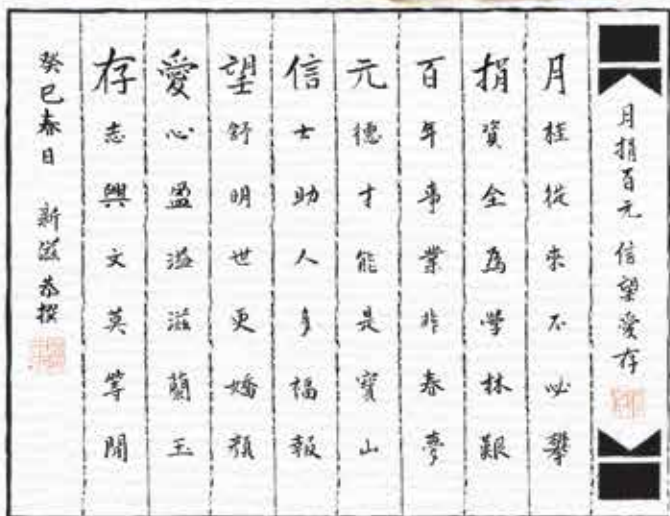 月捐百元 信望愛存
月桂從來不必攀
捐資全為學林艱
百年事業非春夢
元德才能是寶山
信士助人多福報
望舒明世更嬌顏
愛心盈溢滋蘭玉
存志興文莫等閒
癸巳春日 新滋恭撰